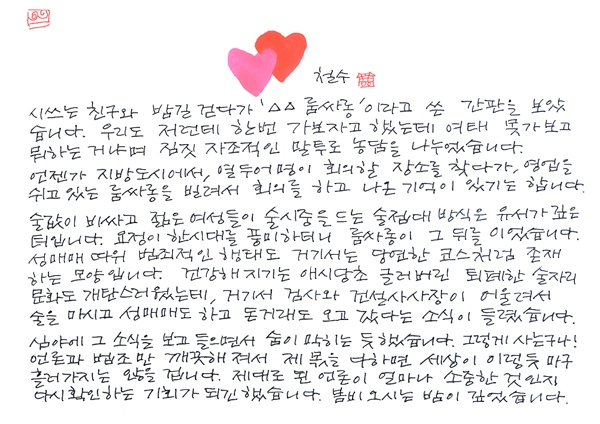 철수
시쓰는 친구와 밤길 걷다가 '△△ 룸싸롱'이라고 쓴 간판을 보았
습니다. 우리도 저런데 한번 가보자고 했는데 여태 못 가보고
뭐하는 거냐며 짐짓 자조적인 말투로 농담을 나누었습니다.
언젠가 지방도시에서, 열두어명이 회의할 장소를 찾다가, 영업을
쉬고 있는 룸싸롱을 빌려서 회의를 하고 나온 기억이 있기는 합니다.
술값이 비싸고 젊은 여성들이 술시중을 드는 술접대 방식은 유서가 깊은
터입니다. 요정이 한시대를 풍미하더니 룸싸롱이 그 뒤를 이었습니다.
성매매 따위 범죄적인 행태도 거기서는 당연한 코스처럼 존재
하는 모양입니다. 건강해지기는 애시당초 글러버린 퇴폐한 술자리
문화도 개탄스러웠는데, 거기서 검사와 건설사사장이 어울려서
술을 마시고 성매매도 하고 돈거래도 오고 갔다는 소식이 들렸습니다.
심야에 그 소식을 보고 들으면서 숨이 막히는 듯 했습니다. 그렇게 사는구나!
언론과 법조만 깨끗해져서 제 몫을 다하면 세상이 이렇듯 마구
흘러가지는 않을 겁니다. 제대로 된 언론이 얼마나 소중한 것인지
다시 확인하는 기회가 되긴 했습니다. 봄비 오시는 밤이 깊었습니다.